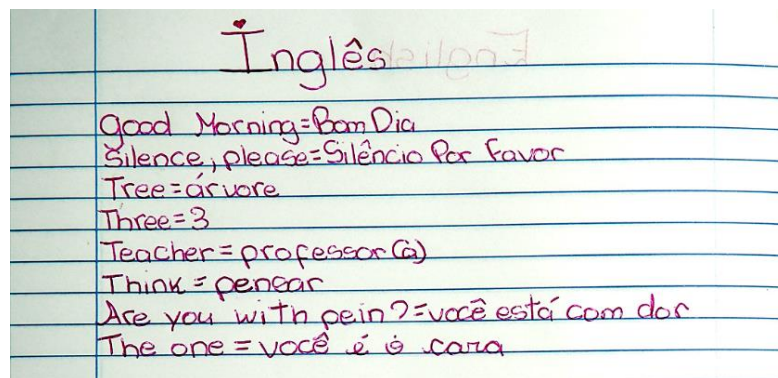 Inglês
English
Good Morning=Bom Dia
Silence, please=Silêncio Por Favor
Tree=árvore
Three=3
Teacher=professor(a)
Think=pensar
Are you with pein?=você está com dor
The one=você é o cara